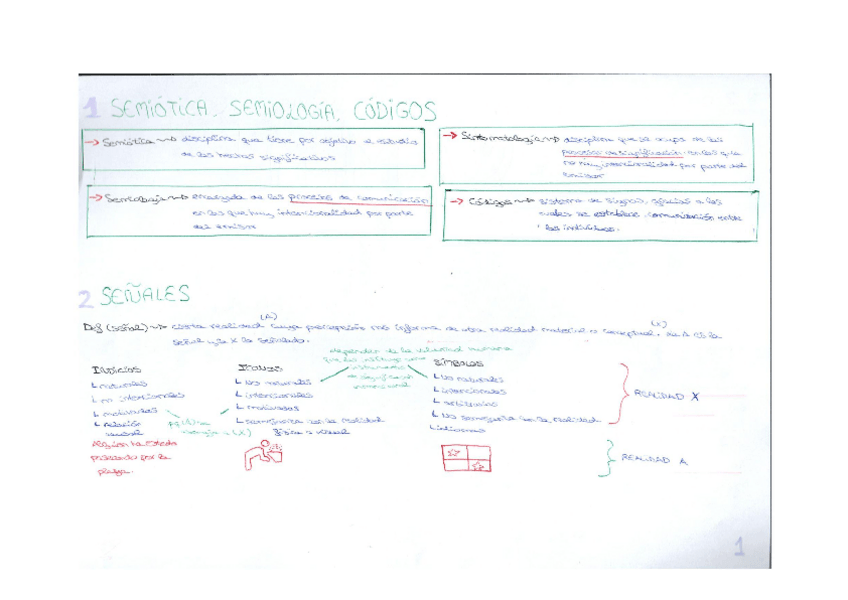 1 SEMIÓTICA, SEMIOLOGÍA, CÓDIGOS
→ Semiótica ~> disciplina que tiene por objetivo el estudio
de los hechos significativos
→ Sintomatología ~> disciplina que se ocupa de los
procesos de significación en los que
no hay intencionalidad por parte del
emisor
→ Semiología ~> encargada de los procesos de comunicación
en los que hay intencionalidad por parte
del emisor
→ Códigos ~> sistema de signos, gracias a los
cuales se establece comunicación entre
los individuos.
2 SEÑALES
(A) (X)
Def (señal) ~> cierta realidad cuya percepción nos informa de otra realidad material o conceptual, se A es la
señal y la X la señalado.
dependen de la voluntad humana
que los
instrumento
de significación
intencional
INDICIOS
naturales
no intencionales
motivados
relación
causal
ICONOS
no naturales
intencionales
motivados
semejanza con la realidad
física o visual
SÍMBOLOS
no naturales
intencionales
arbitrarios
no semejanza con la realidad
idiomas
REALIDAD X
Alguien ha estado
paseando por la
playa.
REALIDAD A
1